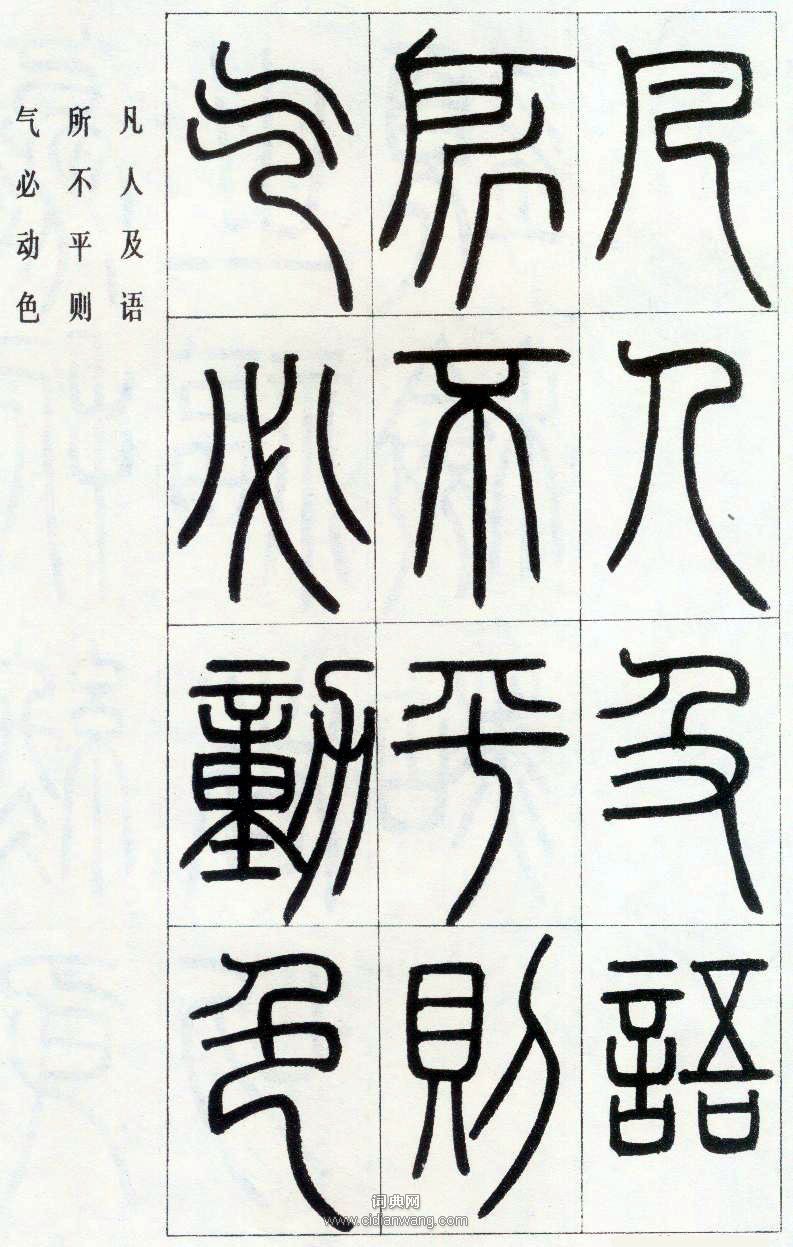 凡人及語
所不平則
气必動色
凡人及语
所不平则
气必动色
词典网
www.cidianwang.com